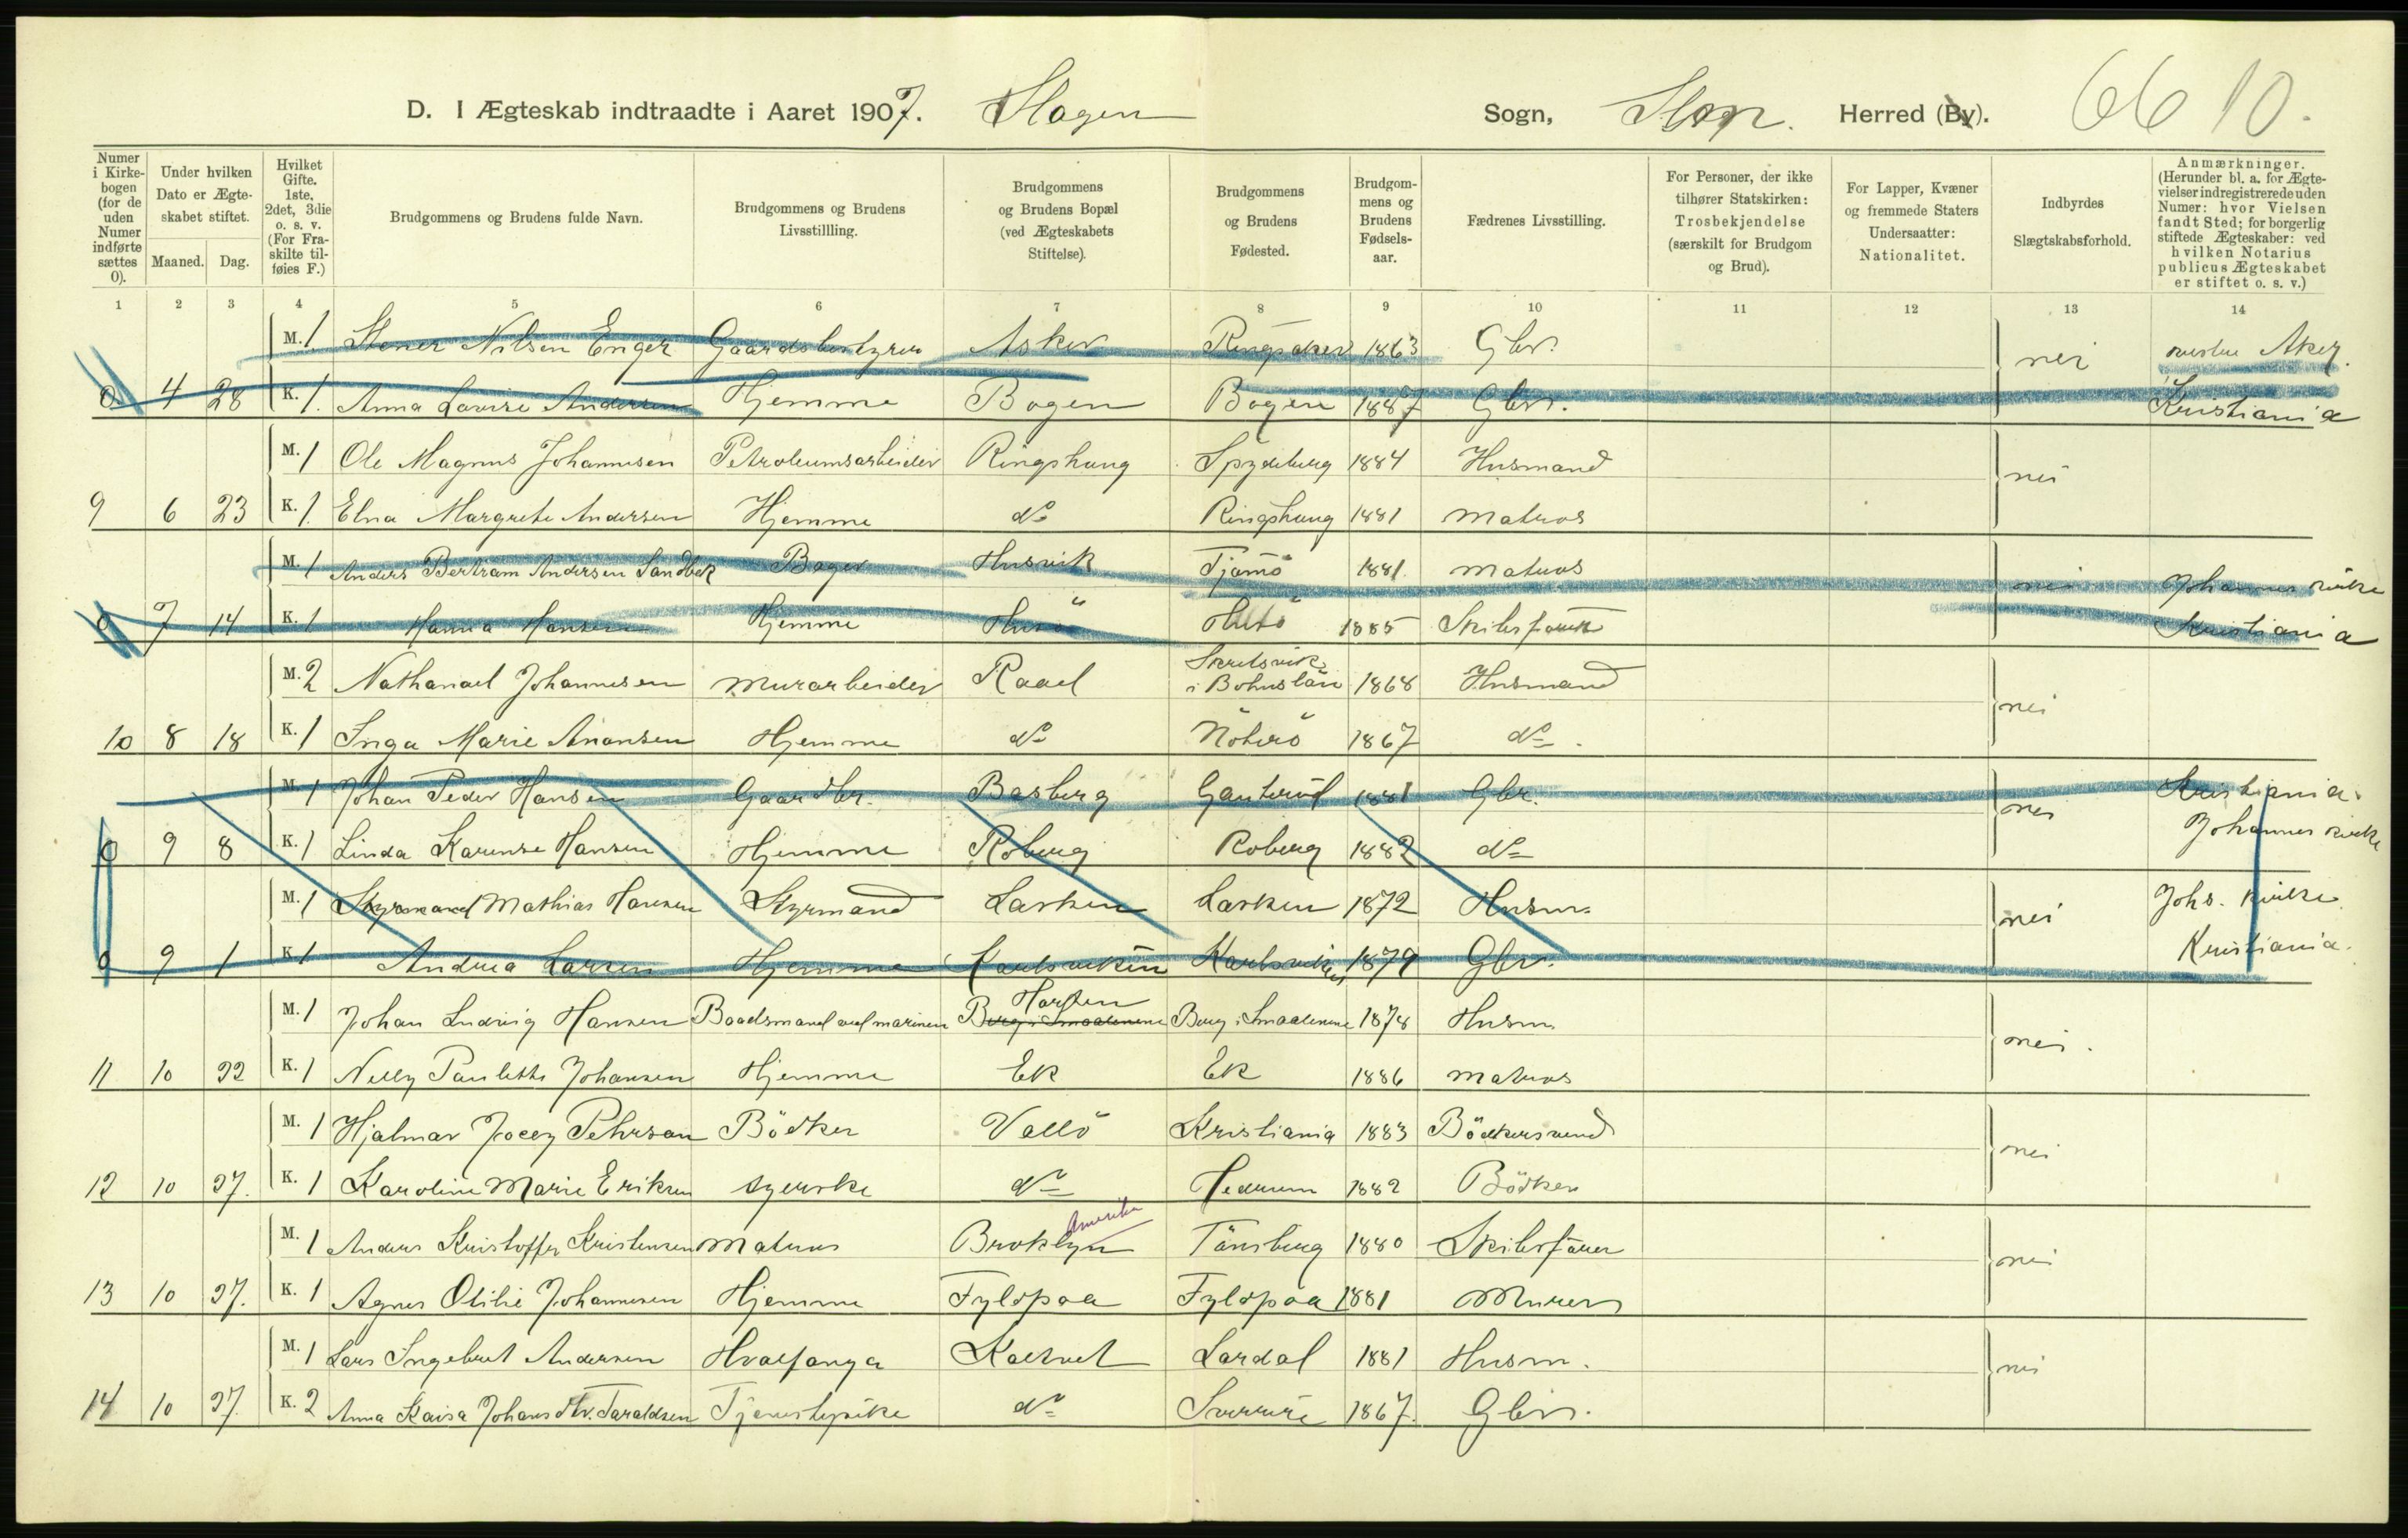 D. I Ægteskab indtraadte i Aaret 1907. Slagen Sogn, Herred (By). 66 10.
Numer i Kirkebogen (for de uden Numer indførte sættes 0).
Under hvilken Dato er Ægteskabet stiftet.
Maaned. Dag.
Hvilket Gifte. 1ste, 2det, 3die o. s. v. (For Fraskilte tilføies F.)
Brudgommens og Brudens fulde Navn.
Brudgommens og Brudens Livsstillling.
Brudgommens og Brudens Bopæl (ved Ægteskabets Stiftelse).
Brudgommens og Brudens Fødested.
Brudgommens og Brudens Fødselsaar.
Fædrenes Livsstilling.
For Personer, der ikke tilhører Statskirken: Trosbekjendelse (særskilt for Brudgom og Brud).
For Lapper, Kvæner og fremmede Staters Undersaatter: Nationalitet.
Indbyrdes Slægtskabsforhold.
Anmærkninger. (Herunder bl. a. for Ægtevielser indregistrerede uden Numer: hvor Vielsen fandt Sted; for borgerlig stiftede Ægteskaber: ved hvilken Notarius publicus Ægteskabet er stiftet o. s. v.)
1 2 3 4 5 6 7 8 9 10 11 12 13 14
M. 1 Stener Nilsen Enger Gaardsbestyrer Asker Ringsaker 1863 Gbr. nei Aker
0 4 28 K. 1. Anna Lovise Andersen Hjemme Bogen Bogen 1887 Gbr. Kristiania
M. 1 Ole Magnus Johannesen Petroleumsarbeider Ringshaug Spydeberg 1884 Husmand nei
9 6 23 K. 1 Elna Margrethe Andersen Hjemme do Ringshaug 1881 Matros
M. 1 Anders Bertram Andersen Sandbek Bager Husvik Tjømö 1881. Matros nei Johannes kirke
0 7 14 K. 1 Hanna Hansen Hjemme Husö Husö 1885 Skibsförer Kristiania
M. 2 Nathanael Johannesen Murarbeider Raael i Bohuslän 1868 Husmand nei
10 8 18 K. 1 Inga Marie Anonsen Hjemme do Nöterö 1867 do
M. 1 Johan Peder Hansen Gaardbr. Basberg Gauterud 1881 Gbr. nei Kristiania.
0 9 8 K. 1 Linda Karense Hansen Hjemme Roberg Roberg 1882 do Johannes kirke
M. 1 Styrmand Mathias Hansen Styrmand Larken Larken 1872 Husm. nei Johs. kirke
0 9 1 K 1 Andrea Larsen Hjemme Karlsvikin Karlsviken 1879 Gbr. Kristiania.
M. 1 Johan Ludvig Hansen Baadsmand ved marinen Horten Berg i Smaalenene Berg i Smaalenene 1878 Husm. nei.
11 10 22 K. 1 Nelly Paulette Johansen Hjemme Ek Ek 1886 Matros
M. 1 Hjalmar Jocey Pehrson Bödker Vallö Kristiania 1883 Bödkersvend nei
12 10 27. K. 1 Karoline Marie Eriksen Syerske do Hedrum 1882 Bödker
M. 1 Anders Kristoffer Kristensen Matros Broklyn Amerika Tönsberg 1880 Skibsförer nei
13 10 27. K. 1 Agnes Otilie Johannesen Hjemme Fyldpaa Fyldpaa 1881 Murer
M. 1 Lars Ingebret Andersen Hvalfanger Kaetvet Lardal 1881 Husm. nei
14 10 27. K. 2 Anna Kaisa Johansdtr. Taraldsen Tjenestepike do Sverrire 1867. Gbr.